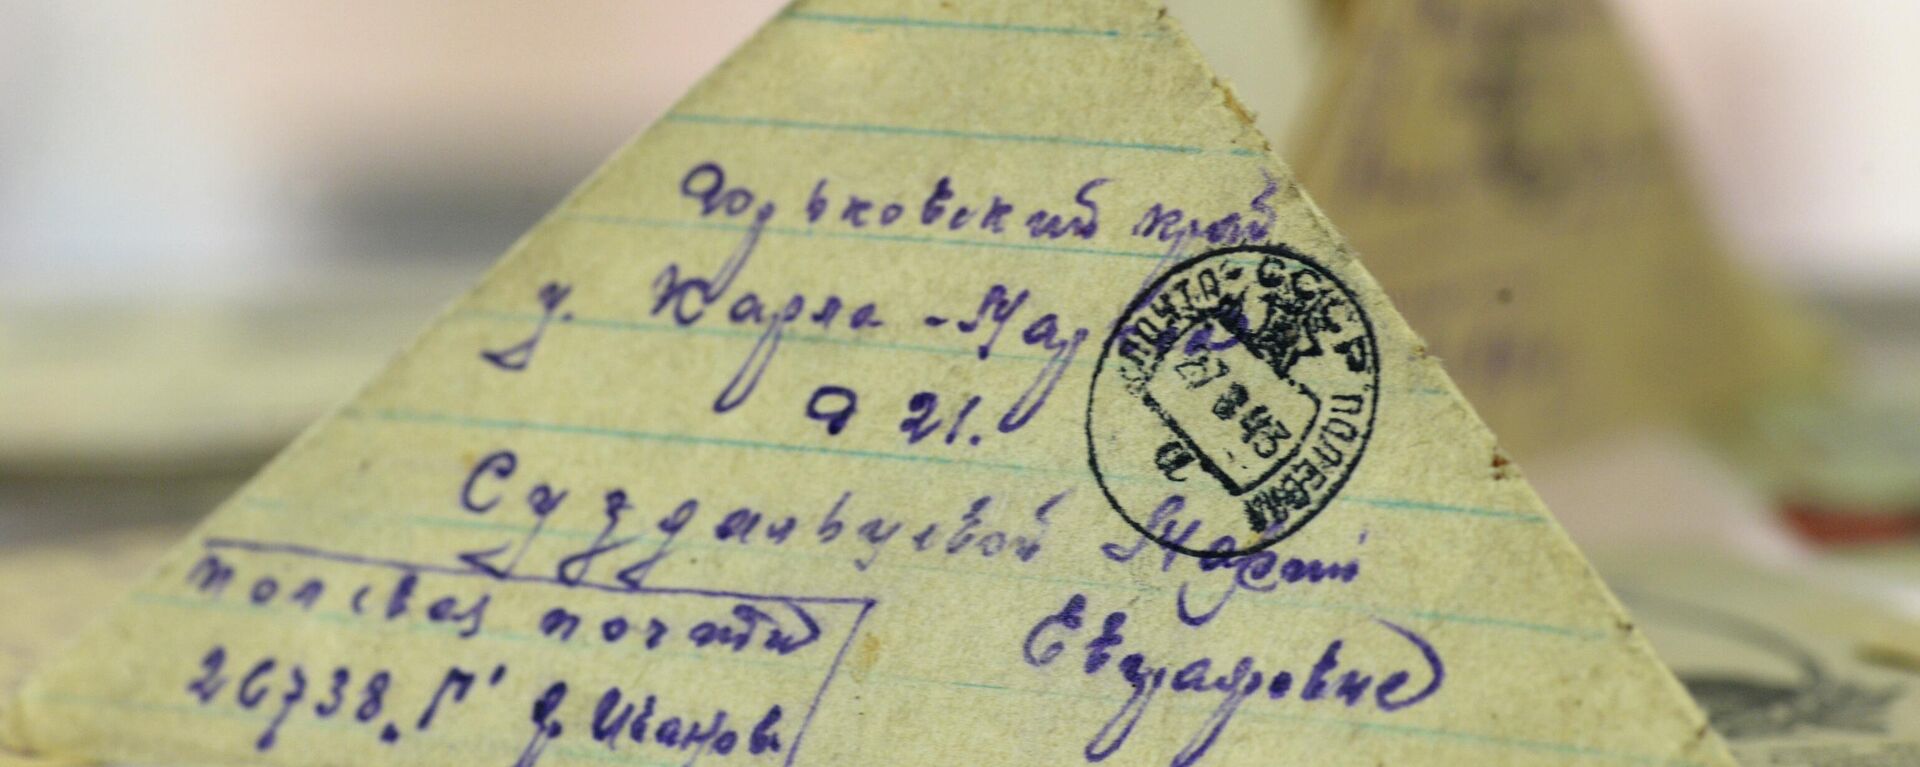 Горьковский край
у. Карла-Маркса
д 21.
Суздальцевой Марии
Евграфовне
полевая почта
26738. "Г" д. Иванов
ПОЧТА СССР ПОЛЕВАЯ
27 8 43